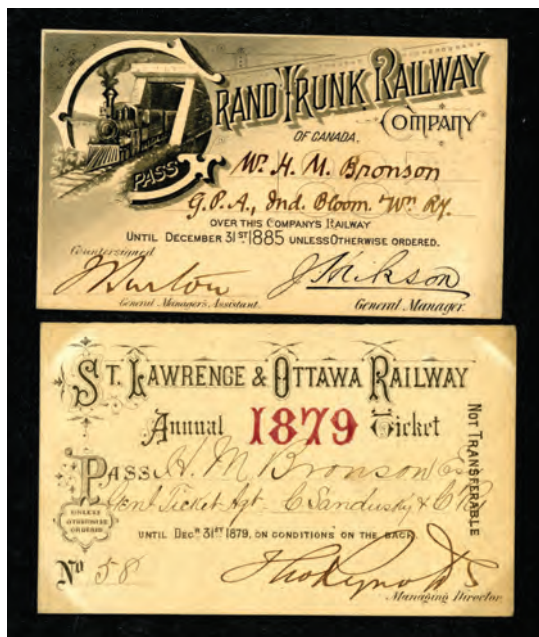 GRAND TRUNK RAILWAY
COMPANY
OF CANADA.
PASS Mr. H. M. Bronson
G. P. A., Ind. Bloom. & Wn Ry.
OVER THIS COMPANY'S RAILWAY
UNTIL DECEMBER 31ST 1885 UNLESS OTHERWISE ORDERED.
Countersigned
General Manager's Assistant.
J Hickson
General Manager.
ST. LAWRENCE & OTTAWA RAILWAY
Annual 1879 Ticket
NOT TRANSFERABLE
PASS H. M. Bronson Esq
Genl Ticket Agt. C Sandusky & C
UNLESS
OTHERWISE
ORDERED
UNTIL DECR 31ST 1879, ON CONDITIONS ON THE BACK.
No 58
Managing Director.